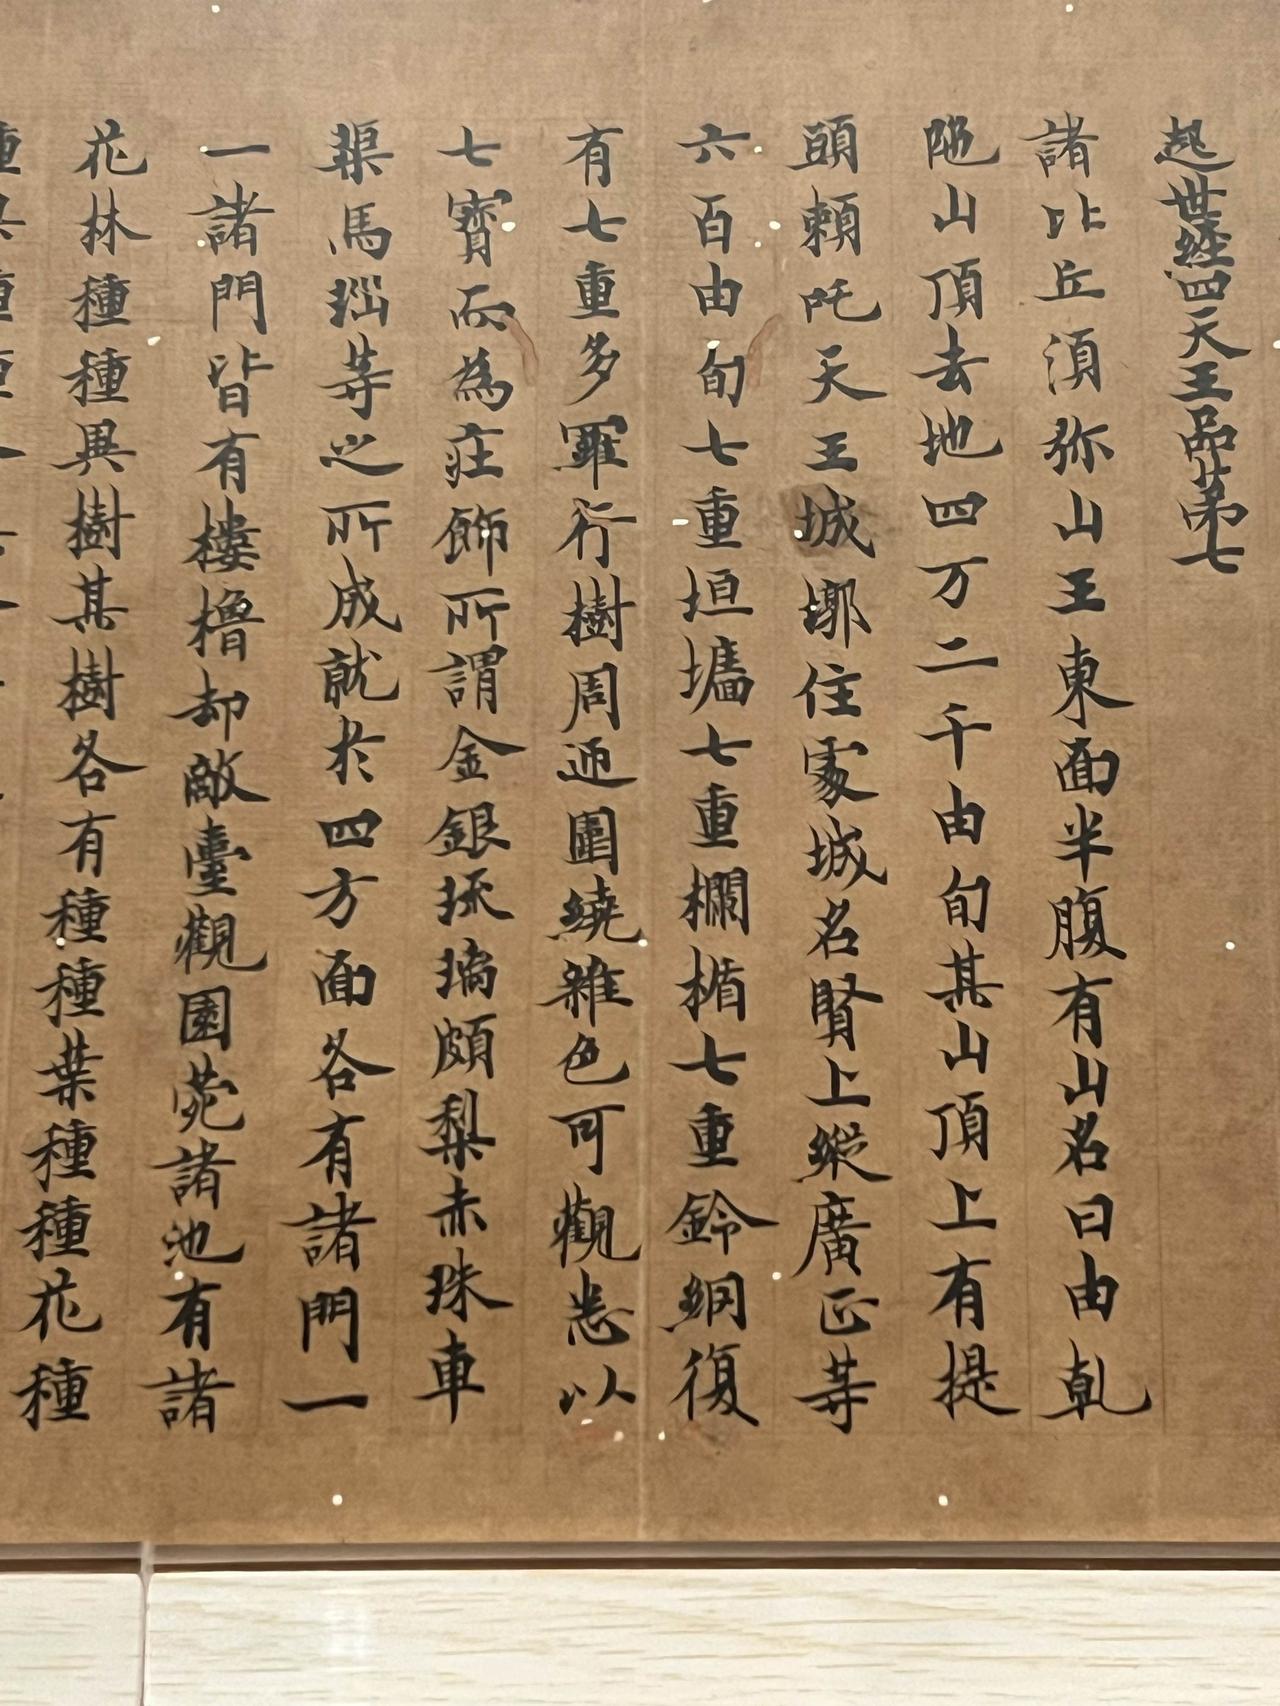 起世經四天王品苐七
諸比丘湏弥山王東面半腹有山名曰由乹
陁山頂去地四万二千由旬其山頂上有提
頭賴吒天王城墎住䖏城名賢上縱廣正䒭
六百由旬七重垣墻七重欄楯七重鈴網復
有七重多羅行樹周迊圍繞雜色可觀悉以
七寶而為庄飾所謂金銀琉璃頗梨赤珠車
𤦲馬瑙䒭之所成就於四方面各有諸門一
一諸門皆有樓櫓却敵臺觀園菀諸池有諸
花林種種異樹其樹各有種種葉種種花種